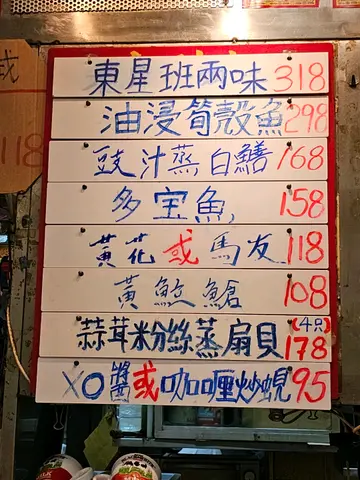 或
118
東星班兩味318
油浸筍殼魚298
豉汁蒸白鱔168
多宝魚158
黃花或馬友118
黃魟鱠108
蒜茸粉絲蒸扇貝(4只)178
XO醬或咖喱炒蜆95